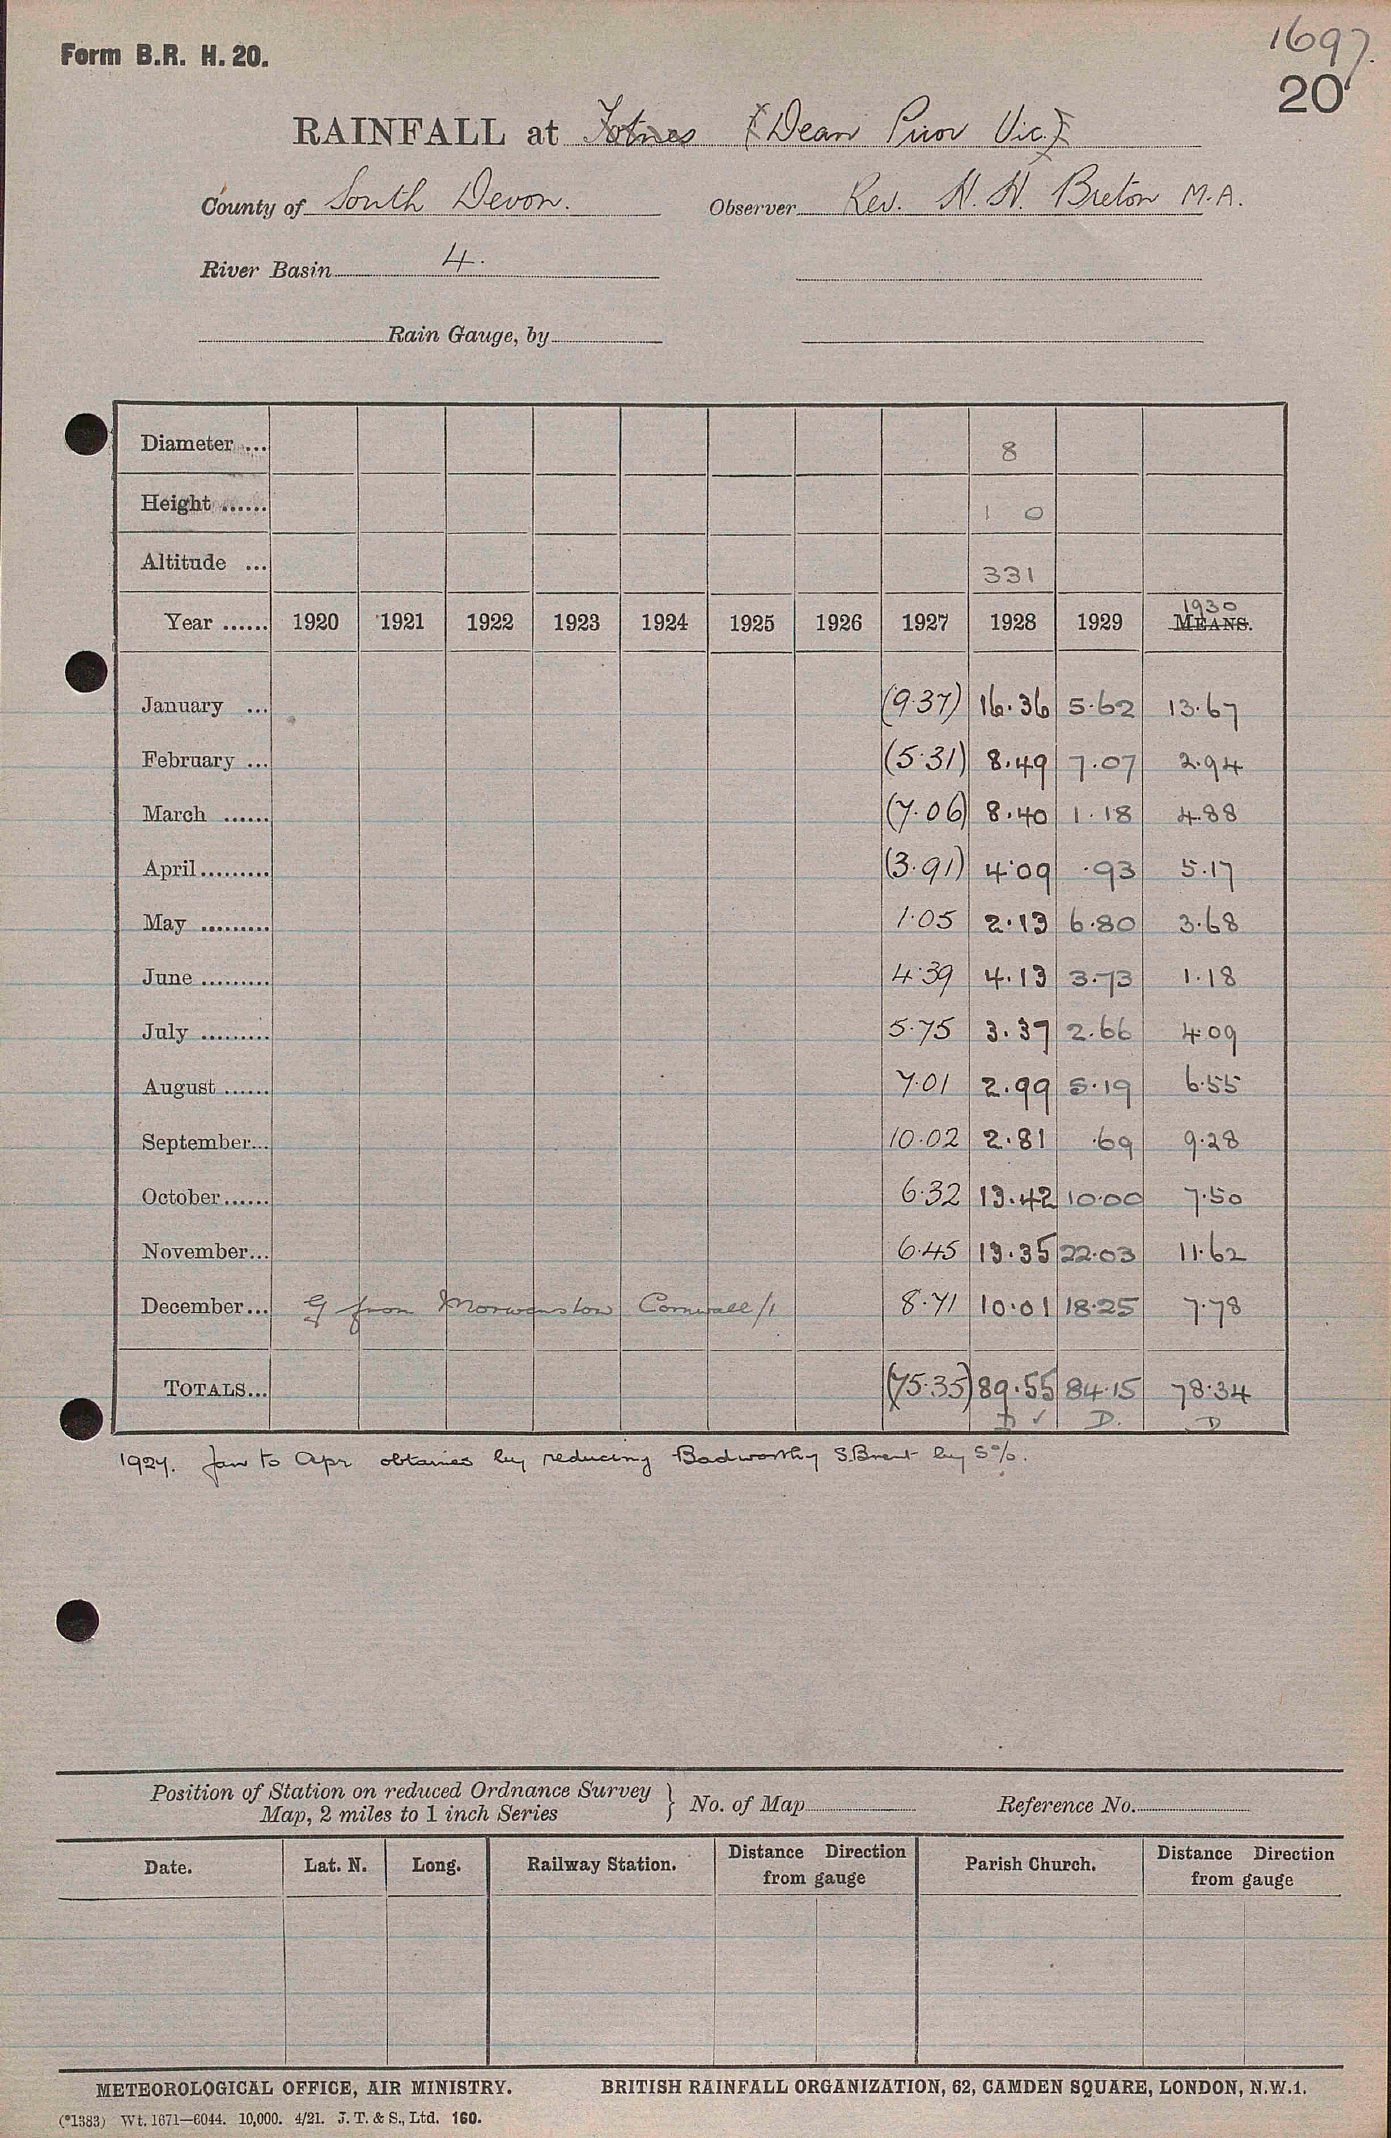 Form B.R. H. 20.
1697.
20
RAINFALL at Totnes (Dean Prior Vic.)
County of South Devon. Observer Rev. H. H. Breton M.A.
River Basin 4.
Rain Gauge, by
Diameter ... 8
Height ...... 1 0
Altitude ... 331
1930
Year ...... 1920 1921 1922 1923 1924 1925 1926 1927 1928 1929 MEANS.
January ... (9.37) 16.36 5.62 13.67
February ... (5.31) 8.49 7.07 2.94
March ...... (7.06) 8.40 1.18 4.88
April ......... (3.91) 4.09 .93 5.17
May ......... 1.05 2.13 6.80 3.68
June ......... 4.39 4.13 3.73 1.18
July ......... 5.75 3.37 2.66 4.09
August ...... 7.01 2.99 5.19 6.55
September... 10.02 2.81 .69 9.28
October ...... 6.32 13.42 10.00 7.50
November... 6.45 13.35 22.03 11.62
December... G from Morwenstow Cornwall/1 8.71 10.01 18.25 7.78
TOTALS... (75.35) 89.55 84.15 78.34
D ✓ D. D
1927. Jan to Apr obtained by reducing Badworthy S.Brent by 5%.
Position of Station on reduced Ordnance Survey
Map, 2 miles to 1 inch Series } No. of Map Reference No.
Date. Lat. N. Long. Railway Station. Distance Direction from gauge Parish Church. Distance Direction from gauge
METEOROLOGICAL OFFICE, AIR MINISTRY. BRITISH RAINFALL ORGANIZATION, 62, CAMDEN SQUARE, LONDON, N.W.1.
(*1383) Wt. 1671—6044. 10,000. 4/21. J. T. & S., Ltd. 160.